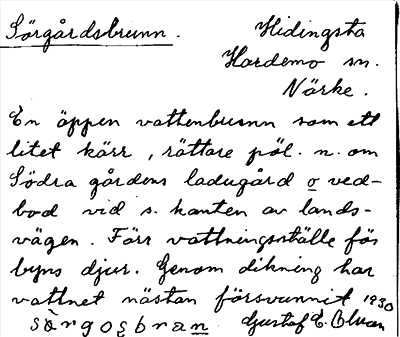 Sörgårdsbrunn. Hidingsta
Hardemo sn.
Närke.
En öppen vattenbrunn som ett
litet kärr, rättare pöl. n. om
Södra gårdens ladugård o ved-
bod vid s. kanten av lands-
vägen. Förr vattningsställe för
byns djur. Genom dikning har
vattnet nästan försvunnit 1930
sörgosbran Gustaf E. Olman